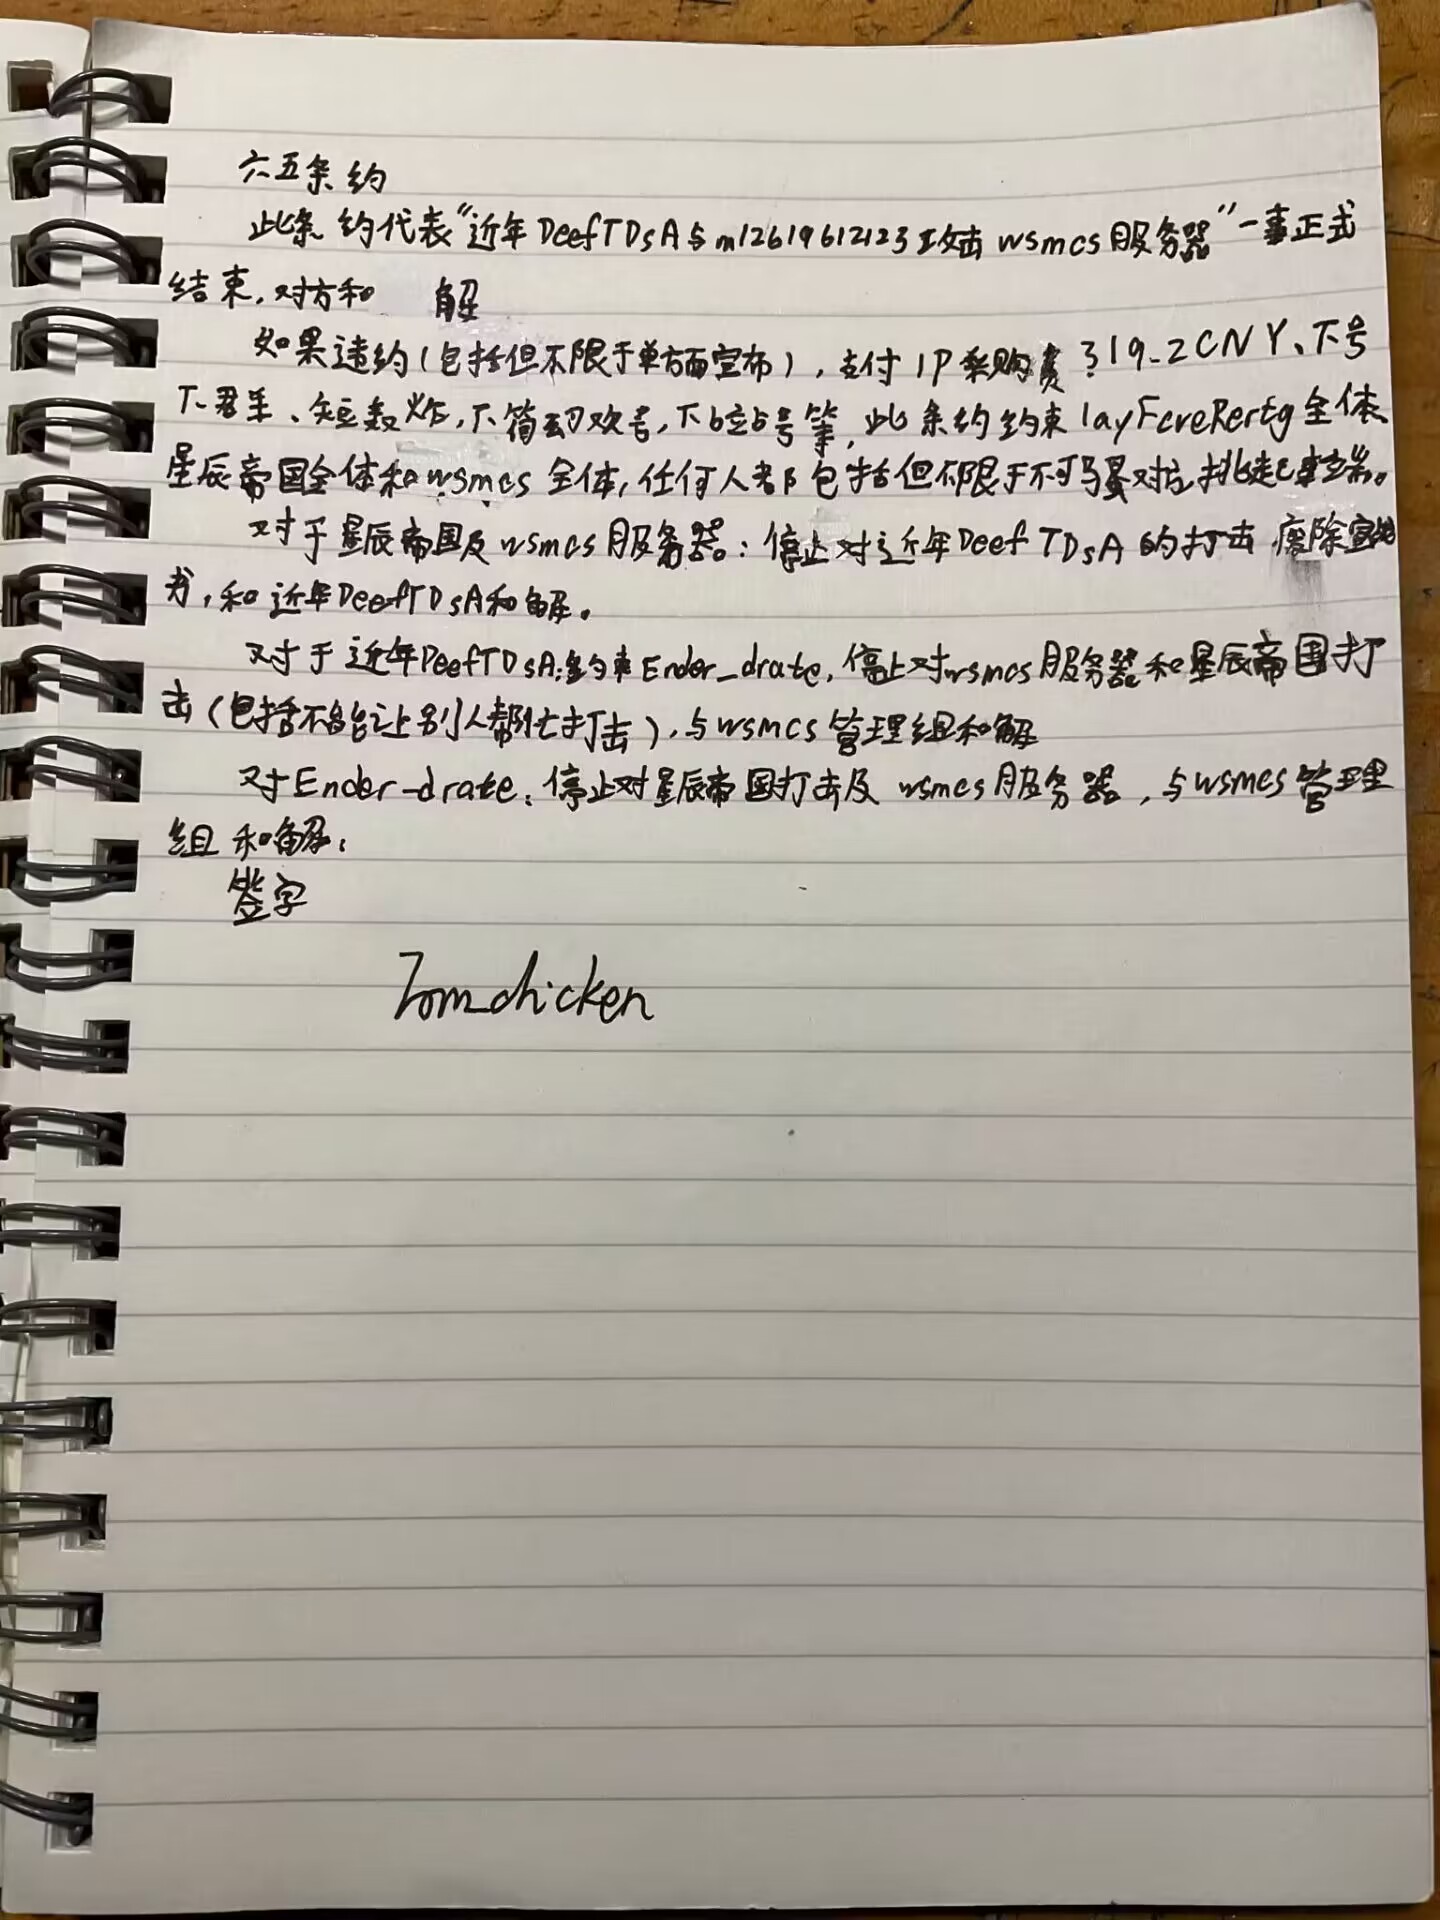 六五条约
此条约代表“近年DeefTDsA与m12619612123攻击wsmcs服务器”一事正式
结束,对方和 解
如果违约(包括但不限于单方面宣布),支付IP采购费319.2CNY、下号
下君羊、短轰炸,下号,下b站号等,此条约约束layFcreRertg全体
星辰帝国全体和wsmcs全体,任何人都包括但不限于不可辱对立挑起事端。
对于星辰帝国及wsmcs服务器:停止对近年DeefTDsA的打击 废除宣战
书,和近年DeefTDsA和解。
对于近年DeefTDsA:约束Ender_drate,停止对wsmcs服务器和星辰帝国打
击(包括不能让别人帮忙打击),与wsmcs管理组和解
对Ender_drate:停止对星辰帝国打击及wsmcs服务器,与wsmcs管理
组和解.
签字
Tom_chicken